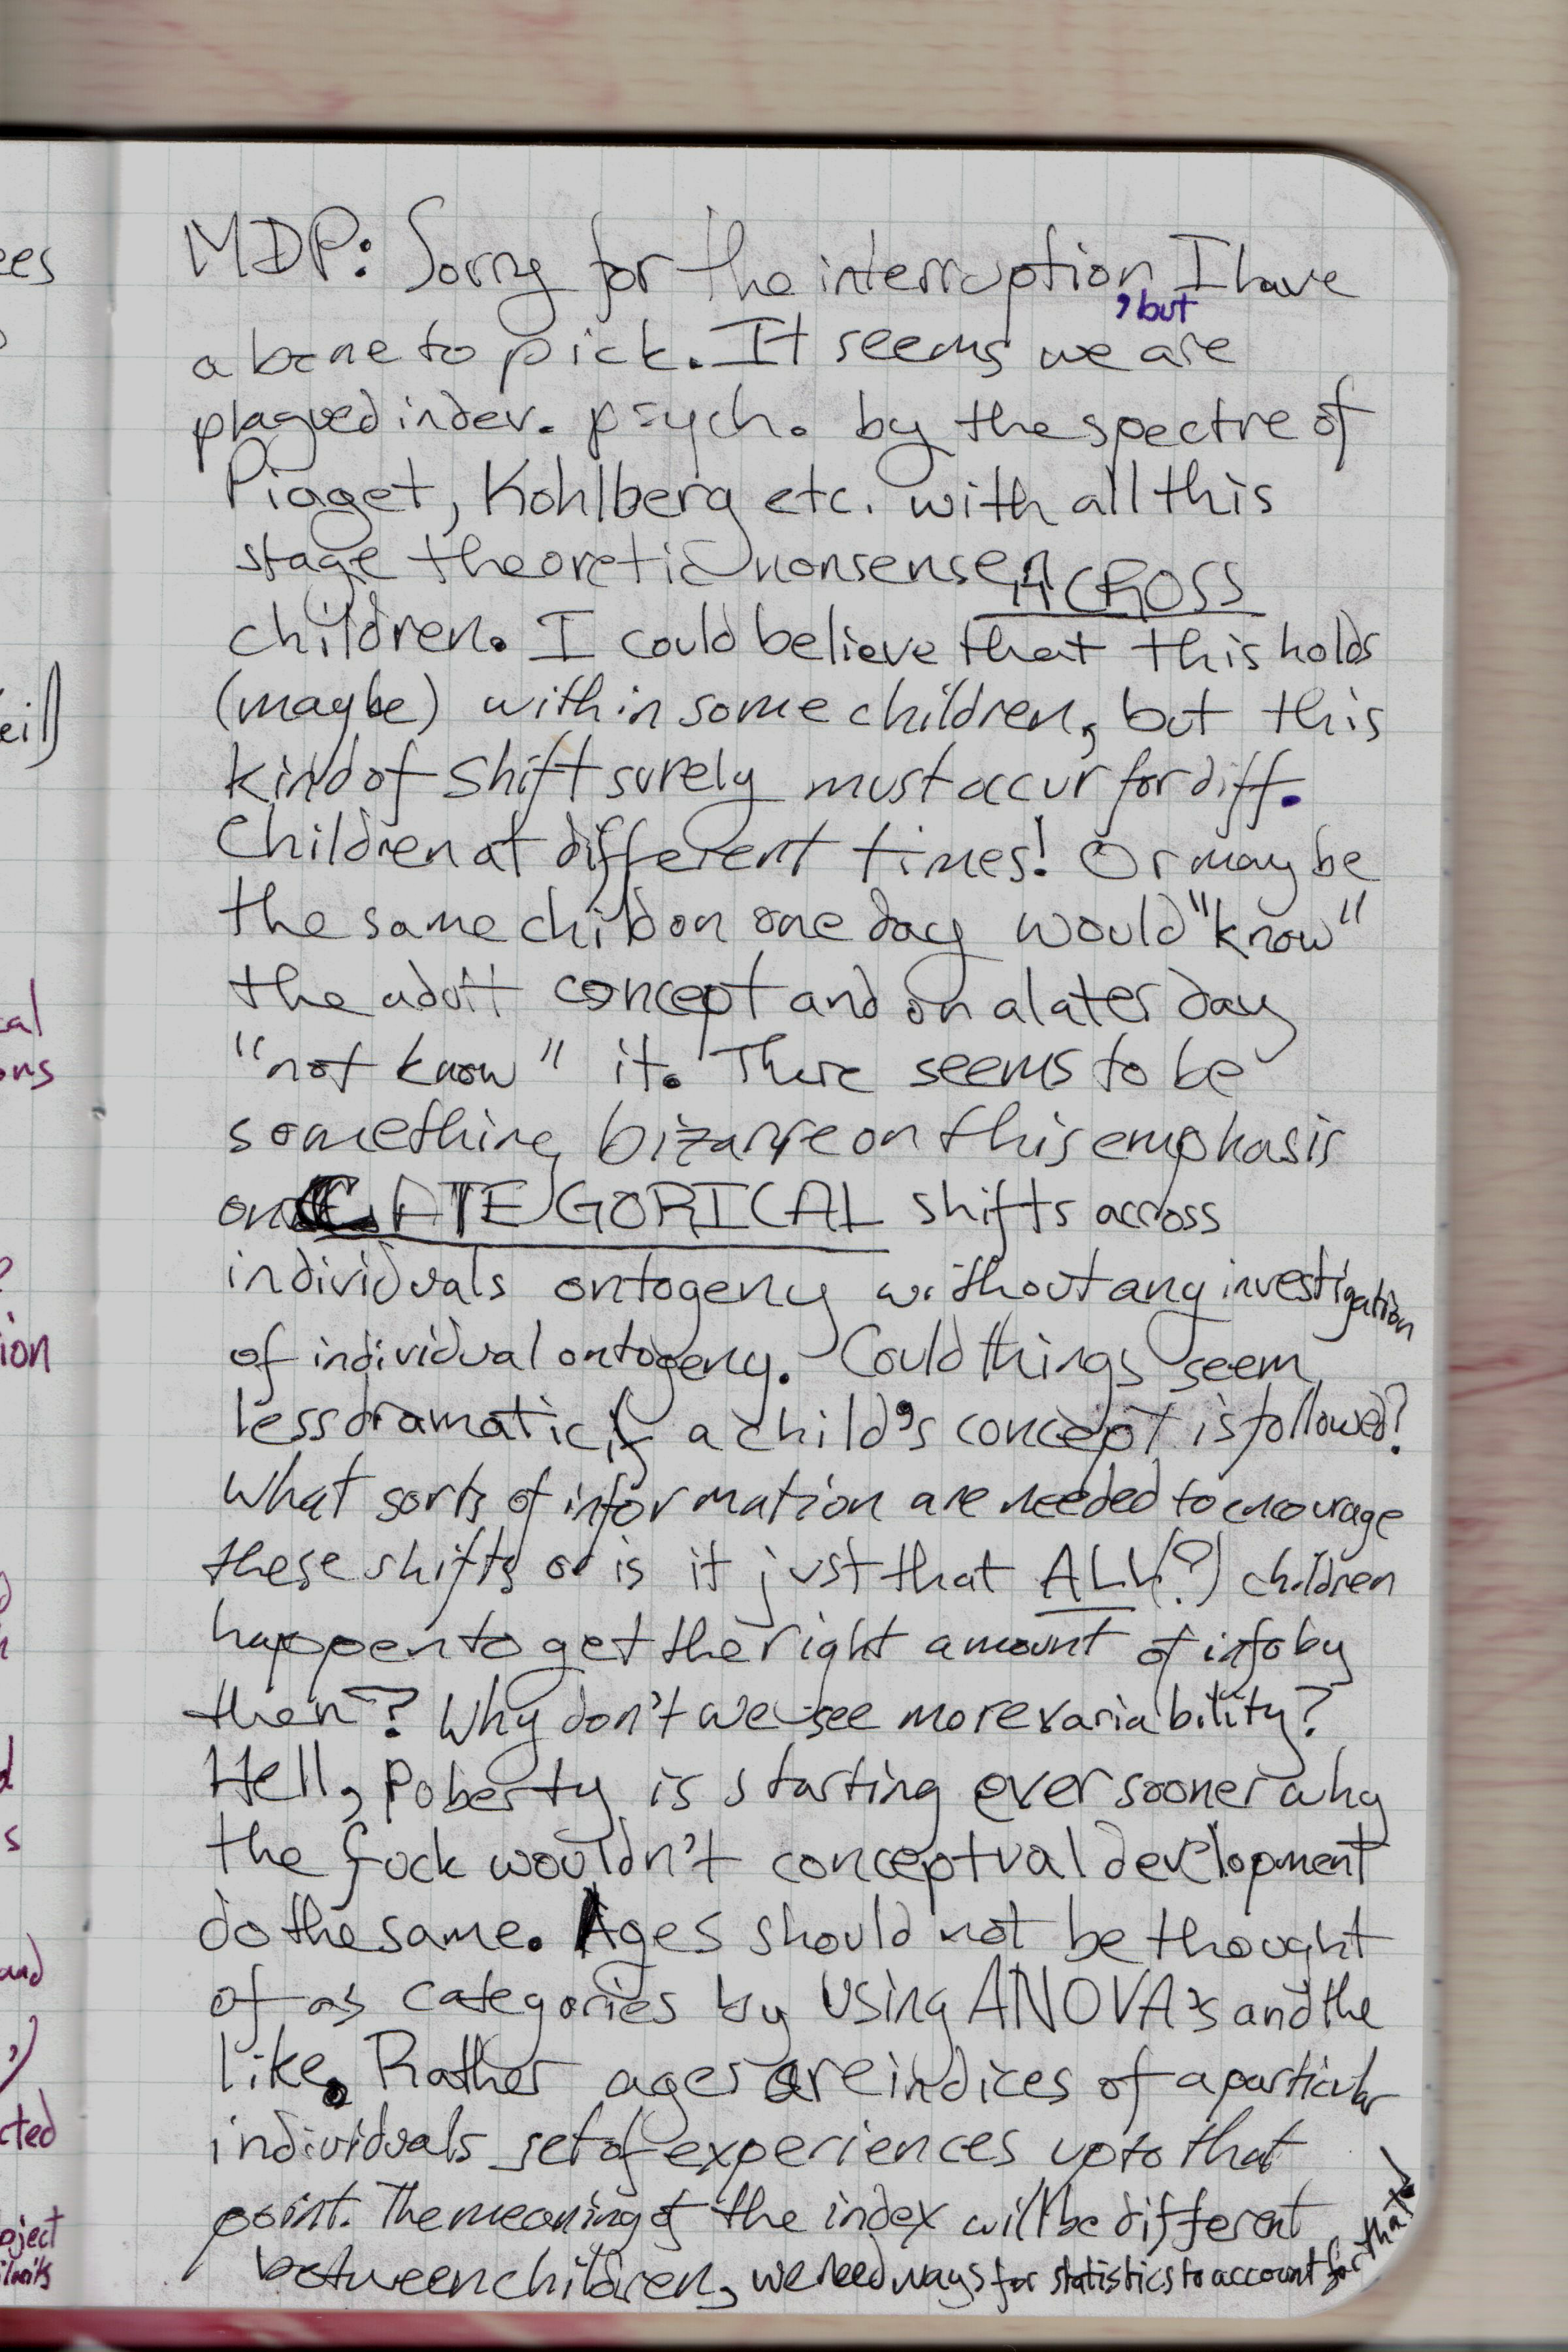 MDP: Sorry for the interruption, but I have
a bone to pick. It seems we are
plagued in dev. psych. by the spectre of
Piaget, Kohlberg etc. with all this
stage theoretic nonsense ACROSS
children. I could believe that this holds
(maybe) within some children, but this
kind of shift surely must occur for diff.
children at different times! Or maybe
the same child on one day would "know"
the adult concept and on a later day
"not know" it. There seems to be
something bizarre on this emphasis
on CATEGORICAL shifts across
individuals ontogeny without any investigation
of individual ontogeny. Could things seem
less dramatic if a child's concept is followed?
What sorts of information are needed to encourage
these shifts or is it just that ALL(?) children
happen to get the right amount of info by
then? Why don't we see more variability?
Hell, Poberty is starting ever sooner why
the fuck wouldn't conceptual development
do the same. Ages should not be thought
of as categories by using ANOVA's and the
like. Rather ages are indices of a particular
individuals set of experiences up to that
point. The meaning of the index will be different
between children, we need ways for statistics to account for that!
ees
eil)
cal
ons
?
ion
d
s
and
cted
oject